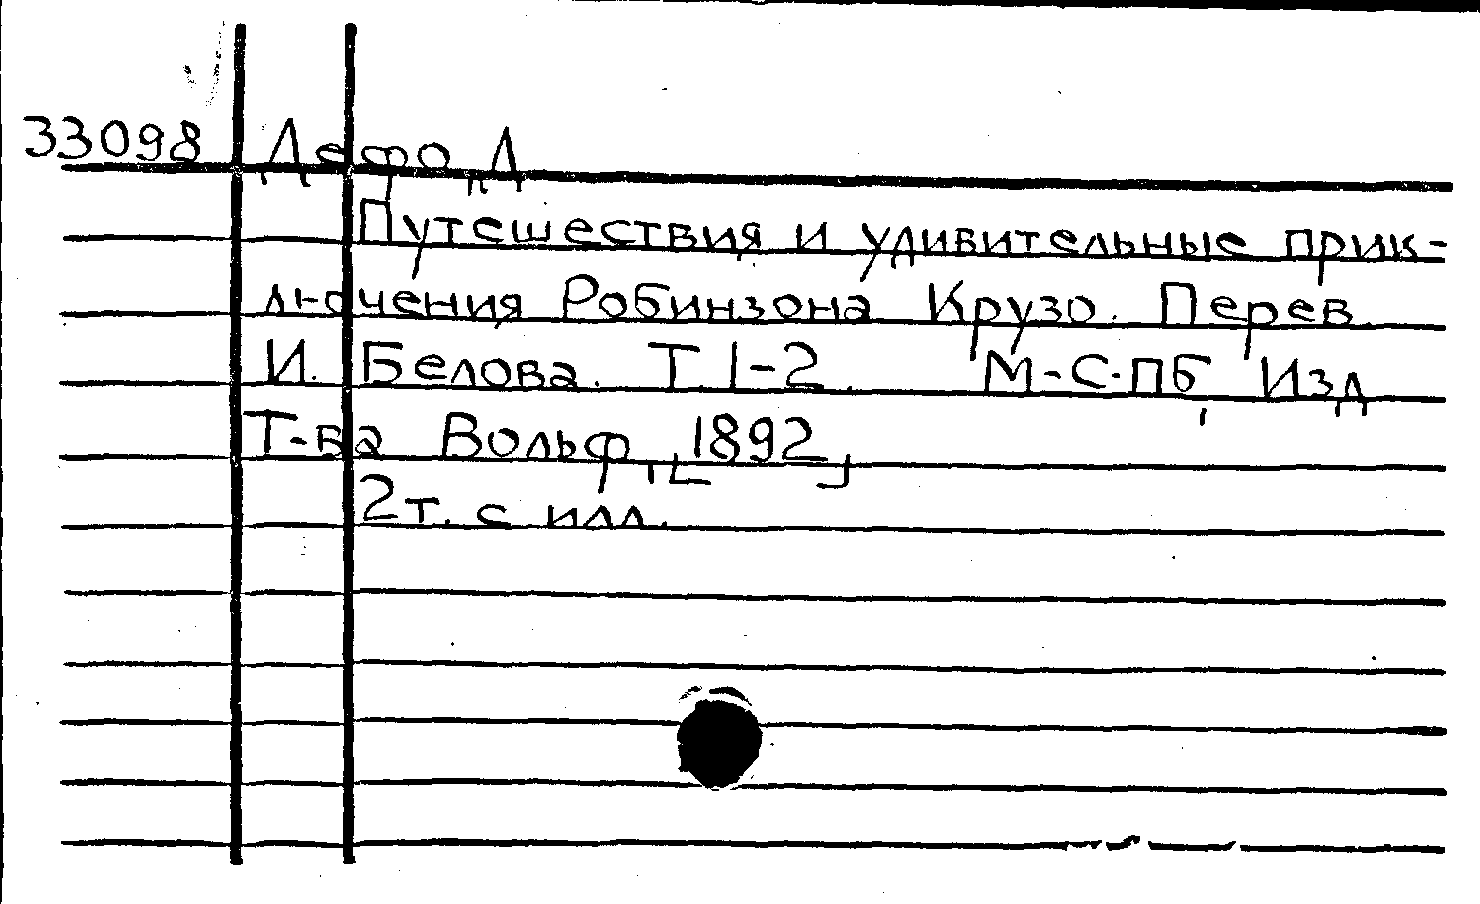 33098 Дефо Д
Путешествия и удивительные прик-
лючения Робинзона Крузо. Перев.
И. Белова. Т.1-2. М-С-ПБ, Изд
Т-ва Вольф, [1892]
2т. с илл.